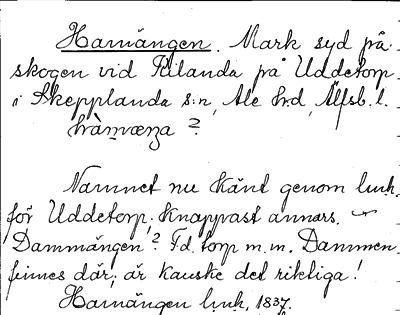 Hamängen. Mark syd på
skogen vid Rålanda på Uddetorp
i Skepplanda s:n, Ale hrd, Älfsb. l.
?
Namnet nu känt genom
för Uddetorp; knappast annars.
Dammängen? Fd. torp m.m. Dammen
finnes där; är kanske det riktiga!
Hamängen 1837.